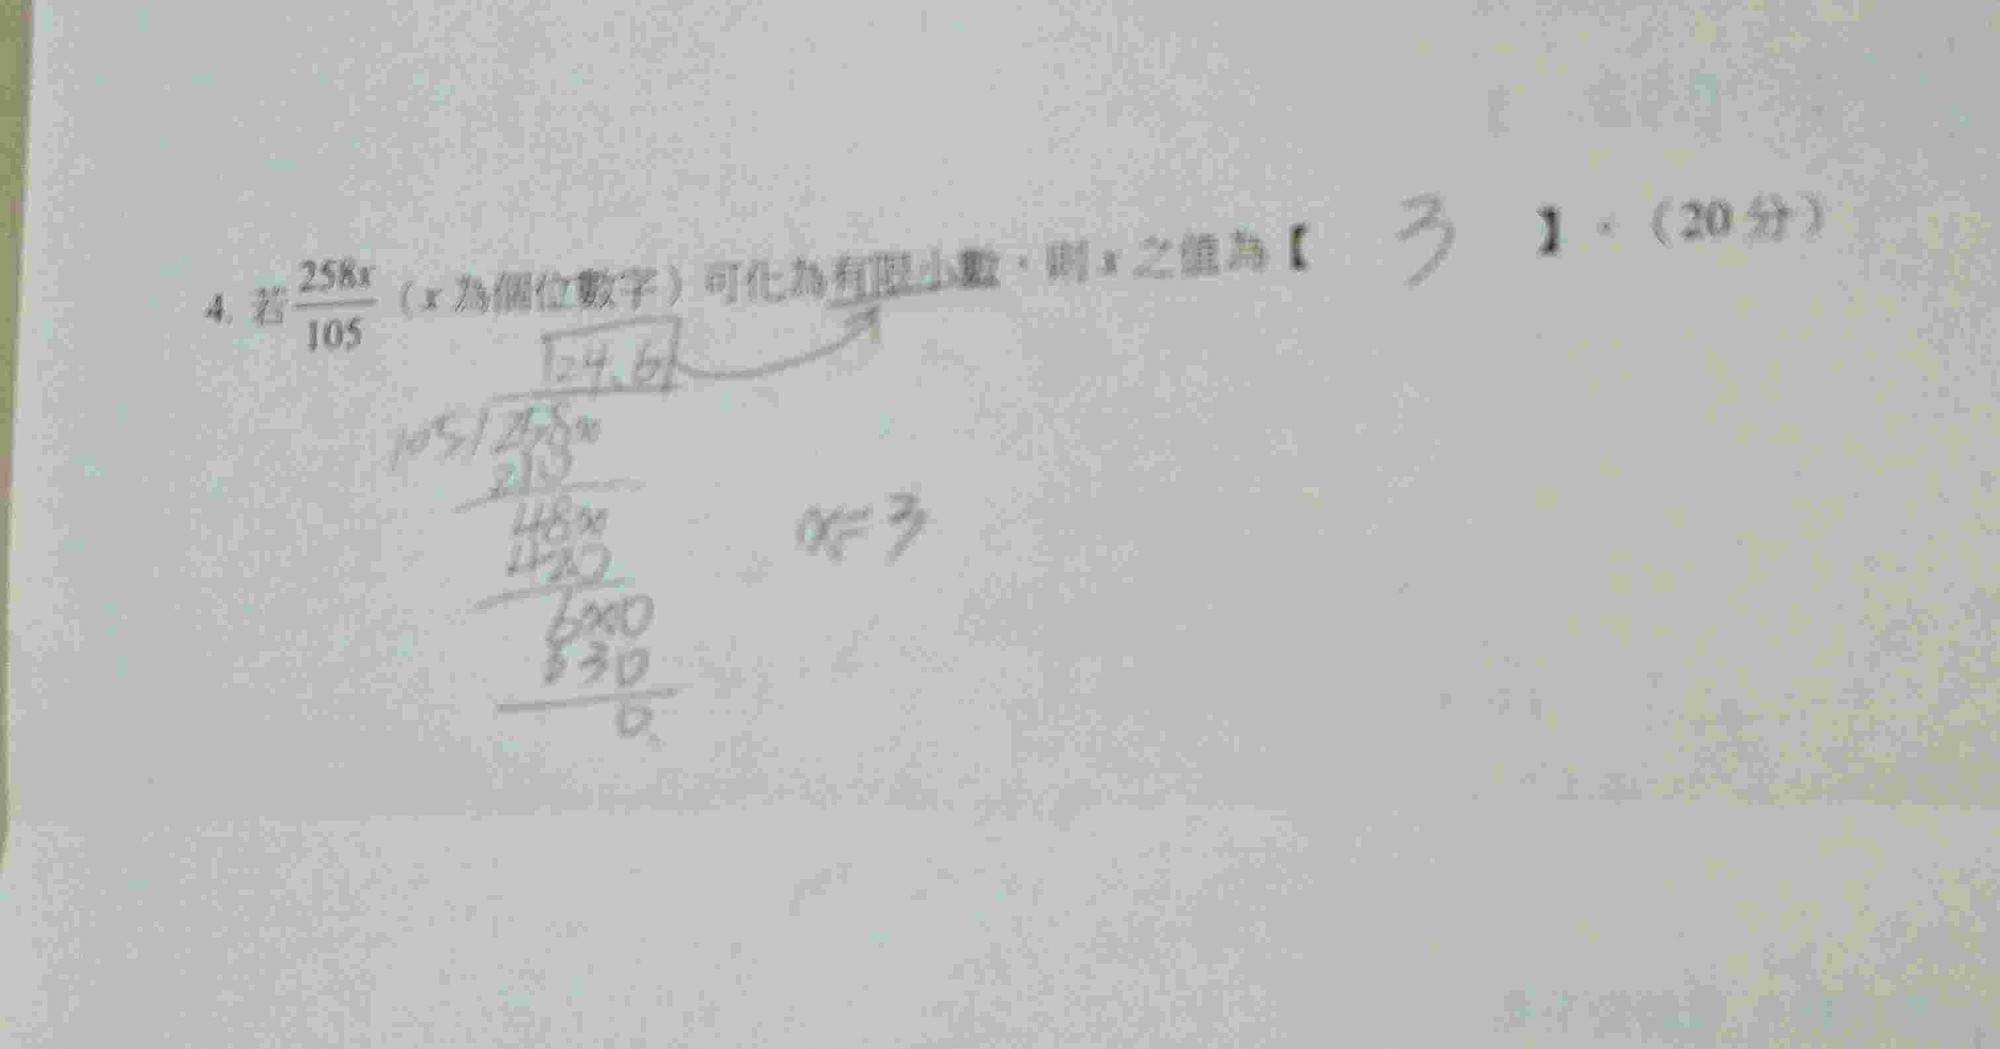 4. 若 258x/105 (x 為個位數字) 可化為有限小數，則 x 之值為【 3 】。(20 分)
24.6
105/258x
210
48x
420
6x0
630
0
x=3